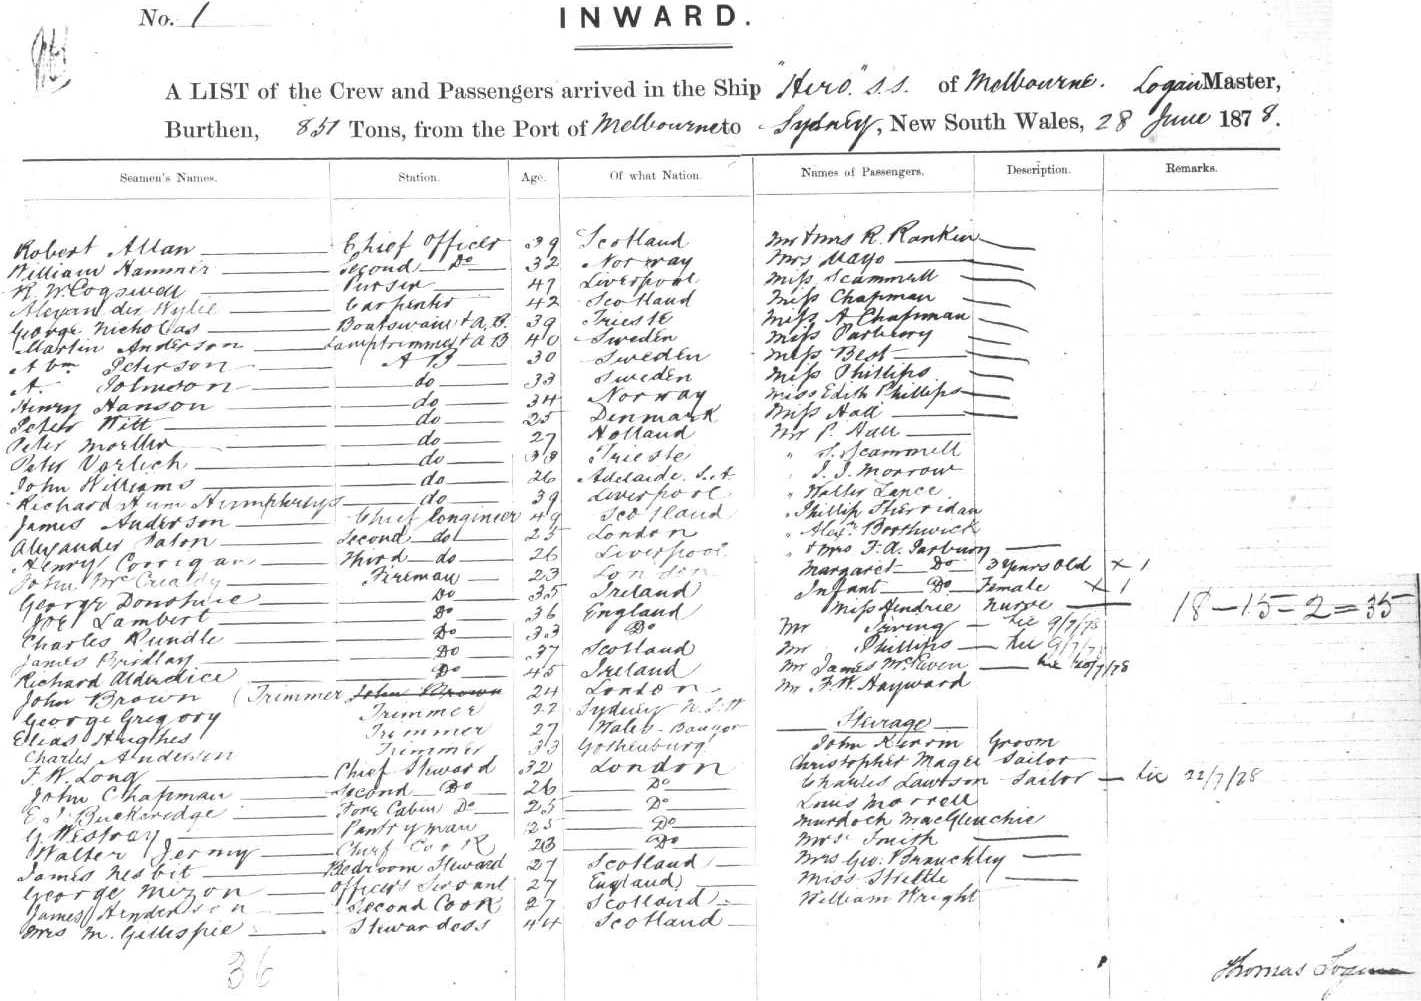 No. 1
INWARD.
A LIST of the Crew and Passengers arrived in the Ship "Hero" S.S. of Melbourne. Logan Master,
Burthen, 851 Tons, from the Port of Melbourne to Sydney, New South Wales, 28 June 1878.
Seamen's Names. Station. Age. Of what Nation. Names of Passengers. Description. Remarks.
Robert Allan Chief Officer 39 Scotland Mr & Mrs R. Rankin
William Hammer Second Do 32 Norway Mrs Mayo
R. W. Cogswell Purser 47 Liverpool Miss Scammell
Alexander Wylie Carpenter 42 Scotland Miss Chapman
George Nicholas Boatswain & A.B. 39 Trieste Miss A Chapman
Martin Anderson Lamptrimmer & A B 40 Sweden Miss Parbury
Abm Peterson A B 30 Sweden Miss Best
A. Johnson do 33 Sweden Miss Phillips
Henry Hanson do 34 Norway Miss Edith Phillips
Peter Witt do 25 Denmark Miss Hall
Peter Moeller do 27 Holland Mr P. Hall
Peter Varlich do 38 Trieste " S. Scammell
John Williams do 26 Adelaide. S.A " J. J. Morrow
Richard Hum Humphreys do 39 Liverpool " Walter Lance
James Anderson Chief Engineer 49 Scotland " Phillip Sherridan
Alexander Paton Second do 25 London " Alexr Borthwick
Henry Corrigan Third do 26 Liverpool " & Mrs F. A. Parbury
John McCready Fireman 23 London Margaret Do 3 years old x 1
George Donohue Do 35 Ireland Infant Do Female x 1
Joe Lambert Do 36 England Miss Hendrie nurse 18-15-2=35
Charles Rundle Do 33 Do Mr Irving 9/7/78
James Bridlay Do 37 Scotland Mr Phillips 9/7/78
Richard Alderdice Do 45 Ireland Mr James McEwen 10/7/78
John Brown (Trimmer John Brown 24 London Mr F. W. Hayward
George Gregory Trimmer 22 Sydney N.S.W
Elias Hughes Trimmer 27 Wales. Bangor Steerage
Charles Andersen Trimmer 33 Gothenburg John Kerrin Groom
F. W. Long Chief Steward 32 London Christopher Magee Sailor
John Chapman Second Do 26 Do Charles Lawson Sailor 22/7/78
E J Buckeridge Fore Cabin Do 25 Do Louis Morrell
G Westray Pantryman 25 Do Murdoch MacGlenchie
Walter Jermy Chief Cook 23 Do Mrs Smith
James Nesbit Bedroom Steward 27 Scotland Mrs Geo. Brauchley
George Mizon Officers Servant 27 England Miss Strettle
James Henderson Second Cook 27 Scotland William Wright
Mrs M. Gillespie Stewardess 44 Scotland
36
Thomas Logan